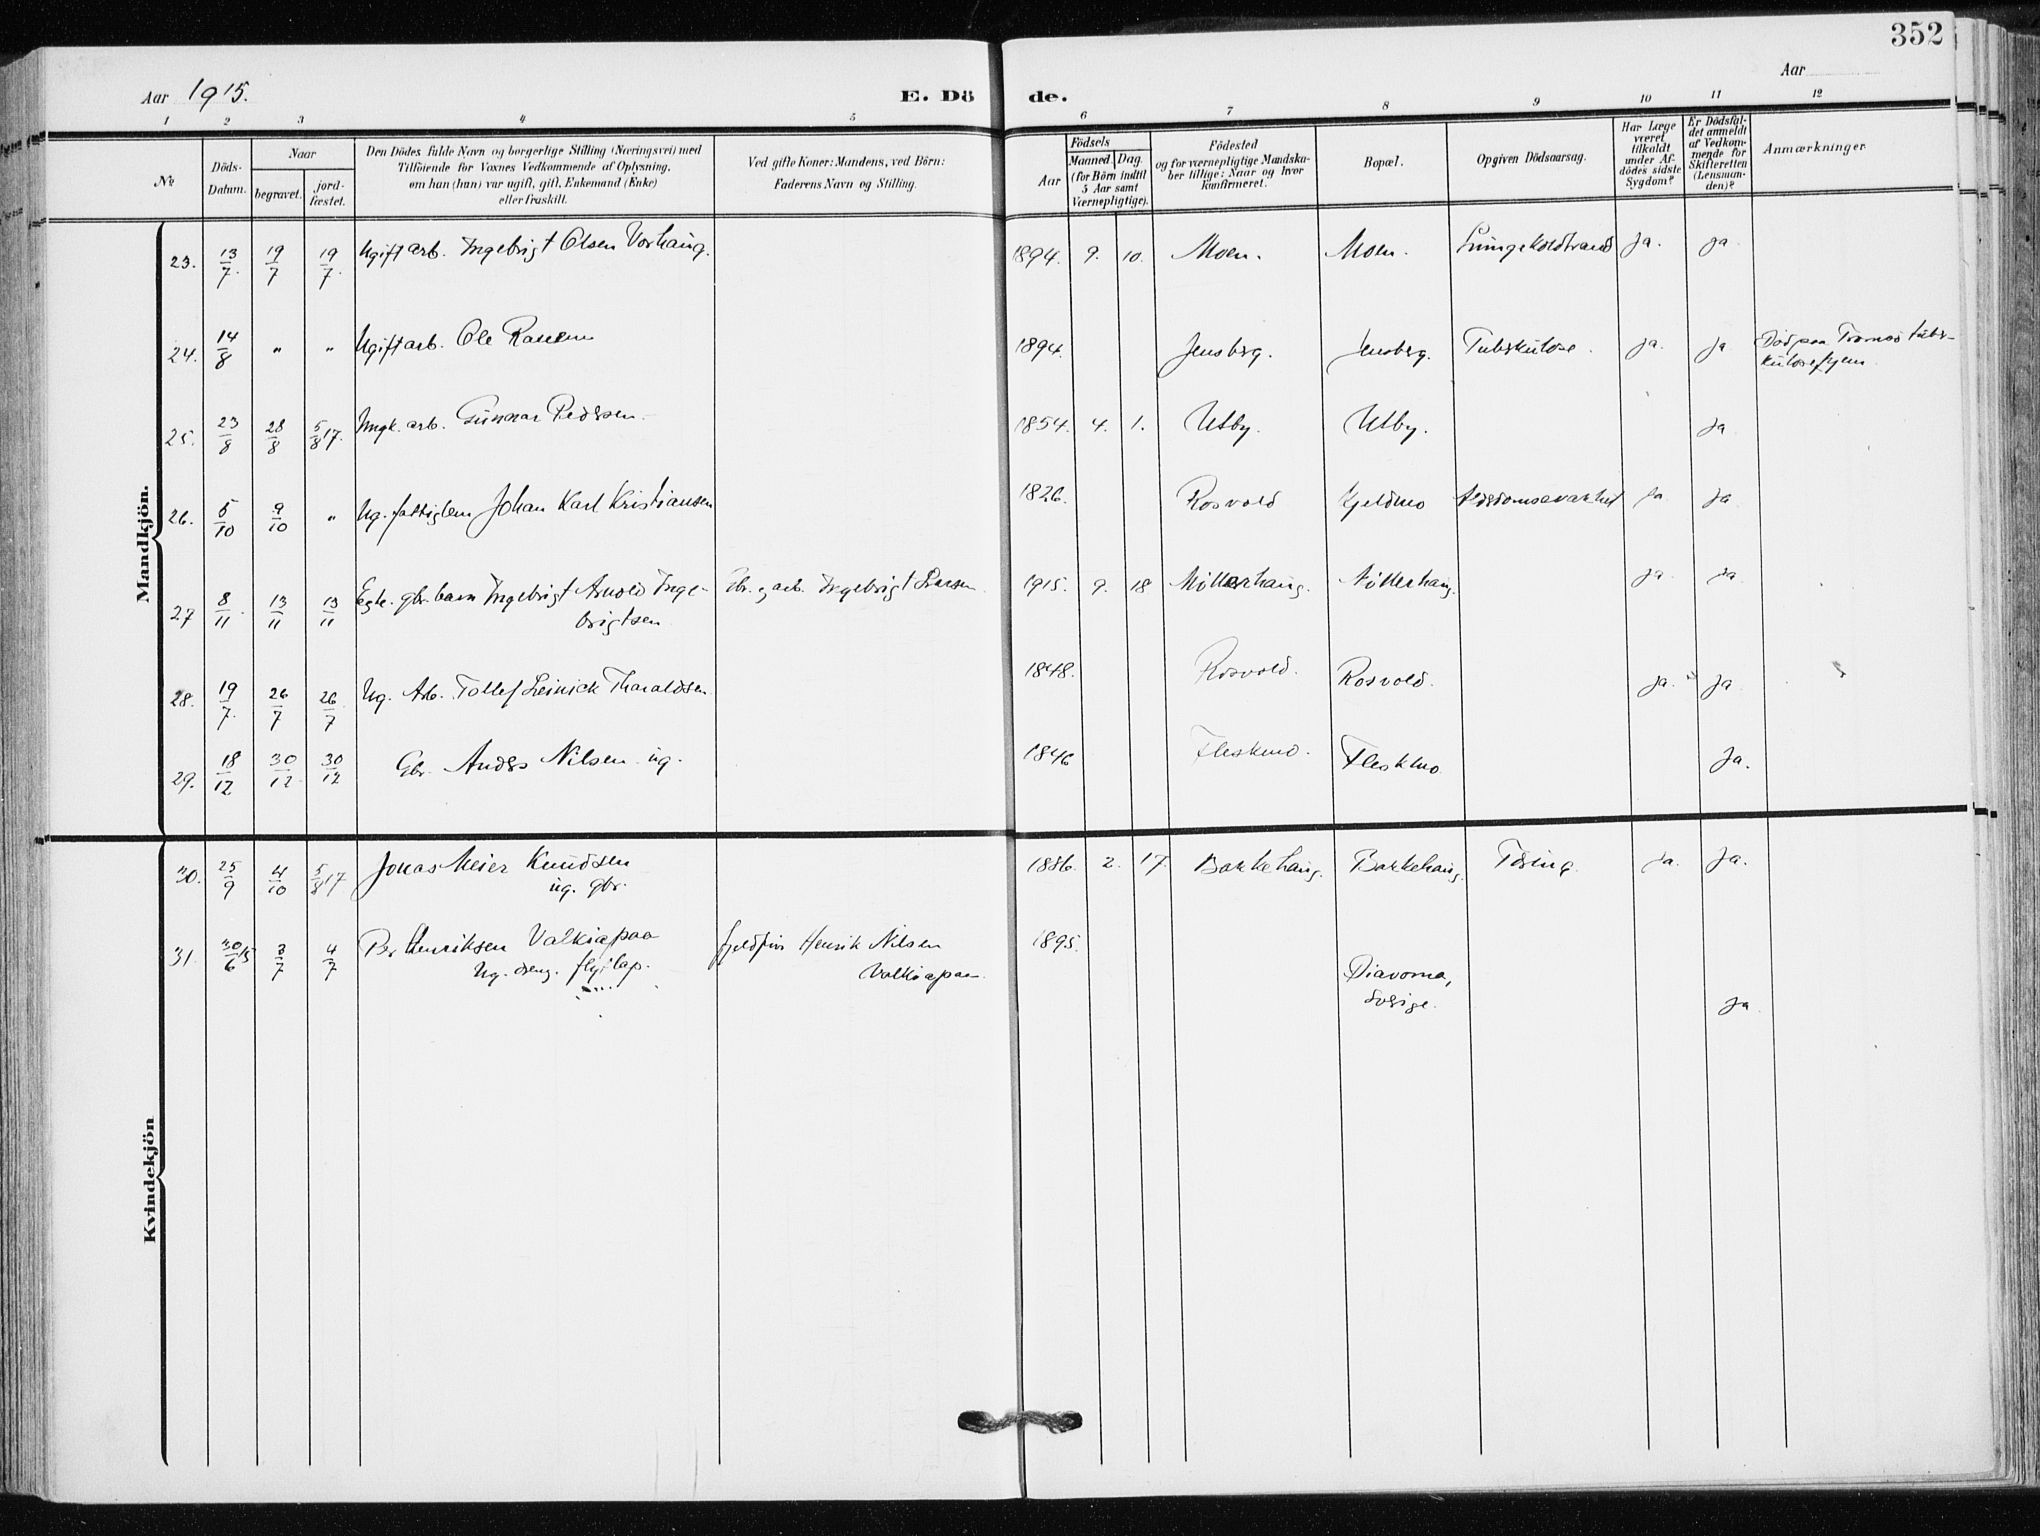 352
Aar 1915. E. Dö de. Aar
1 2 3 4 5 6 7 8 9 10 11 12
№
Döds-
Datum.
Naar
begravet.
jord-
fæstet.
Den Dödes fulde Navn og borgerlige Stilling (Næringsvei) med
Tilföiende for Voxnes Vedkommende af Oplysning,
om han (hun) var ugift, gift, Enkemand (Enke)
eller fraskilt.
Ved gifte Koner: Mandens, ved Börn:
Faderens Navn og Stilling.
Födsels
Aar
Maaned. Dag.
(for Börn indtil
5 Aar samt
Værnepligtige).
Födested
og for værnepligtige Mandska-
ber tillige: Naar og hvor
konfirmeret.
Bopæl.
Opgiven Dödsaarsag.
Har Læge
været
tilkaldt
under Af-
dödes sidste
Sygdom?
Er Dödsfal-
det anmeldt
af Vedkom-
mende for
Skifteretten
(Lensman-
den)?
Anmærkninger
Mandkjön.
23. 13/7. 19/7 19/7. Ugift arb. Ingebrigt Olsen Vorhaug. 1894. 9. 10. Moen. Moen. Ja. ja
24. 14/8 " " Ugift arb. Ole 1894. Jensberg. Jensberg. Tuberkulose ja. ja Död paa Tromsö tuber-
kulosehjem.
25. 23/8 28/8 5/8 17. Ungk. arb. Gunnar Pedersen. 1854. 4. 1. Utby. Utby. ja
26. 5/10 9/10 " Ug. fattiglem Johan Karl Kristiansen 1826. Rosvold Kjeldmo Alderdomssvakhet Ja ja
27 8/11 13/11 13/11 Egte. gbr. barn Ingebrigt Arnold Inge-
brigtsen
Gbr. og arb. Ingebrigt Larsen. 1915. 9. 18 Möllerhaug. Möllerhaug. ja ja
28. 19/7. 26/7 26/7 Ug. Arb. Tollef Leinick Tharaldsen. 1848. Rosvold. Rosvold. ja. ja
29. 18/12 30/12 30/12 Gbr. Anders Nilsen ug. 1846 Fleskmo. Fleskmo Ja.
Kvindekjön
30. 25/9 4/10 5/8 17 Jonas Meier Knudsen
ug. gbr.
1886. 2. 17. Bakkehaug. Bakkehaug. Tæring. ja. Ja.
31. 30/6 15 3/7 4/7 Per Henriksen Valkiapaa
Ug. svensk. flytlap.
fjeldfin Henrik Nilsen
Valkiapaa.
1895.
Sverige.
Ja